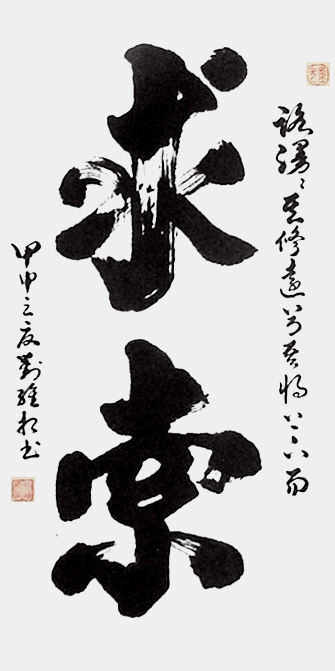 路漫漫其修遠兮吾將上下而
求索
甲申之夏劉維書